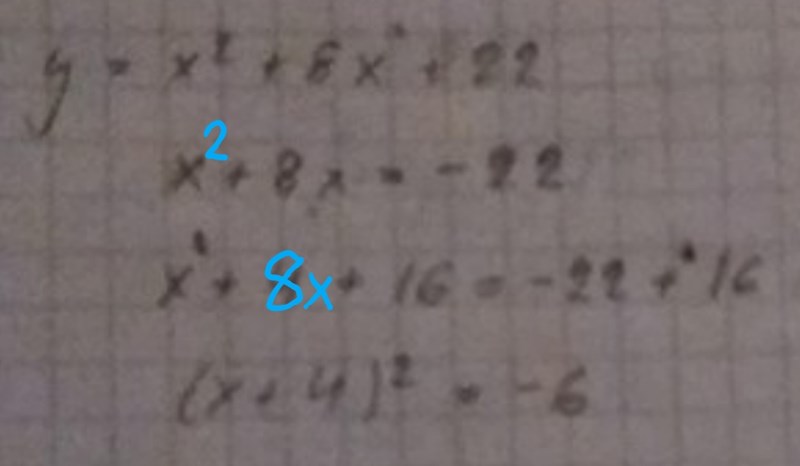 y = x² + 8x + 22
x² + 8x = -22
x² + 8x + 16 = -22 + 16
(x + 4)² = -6